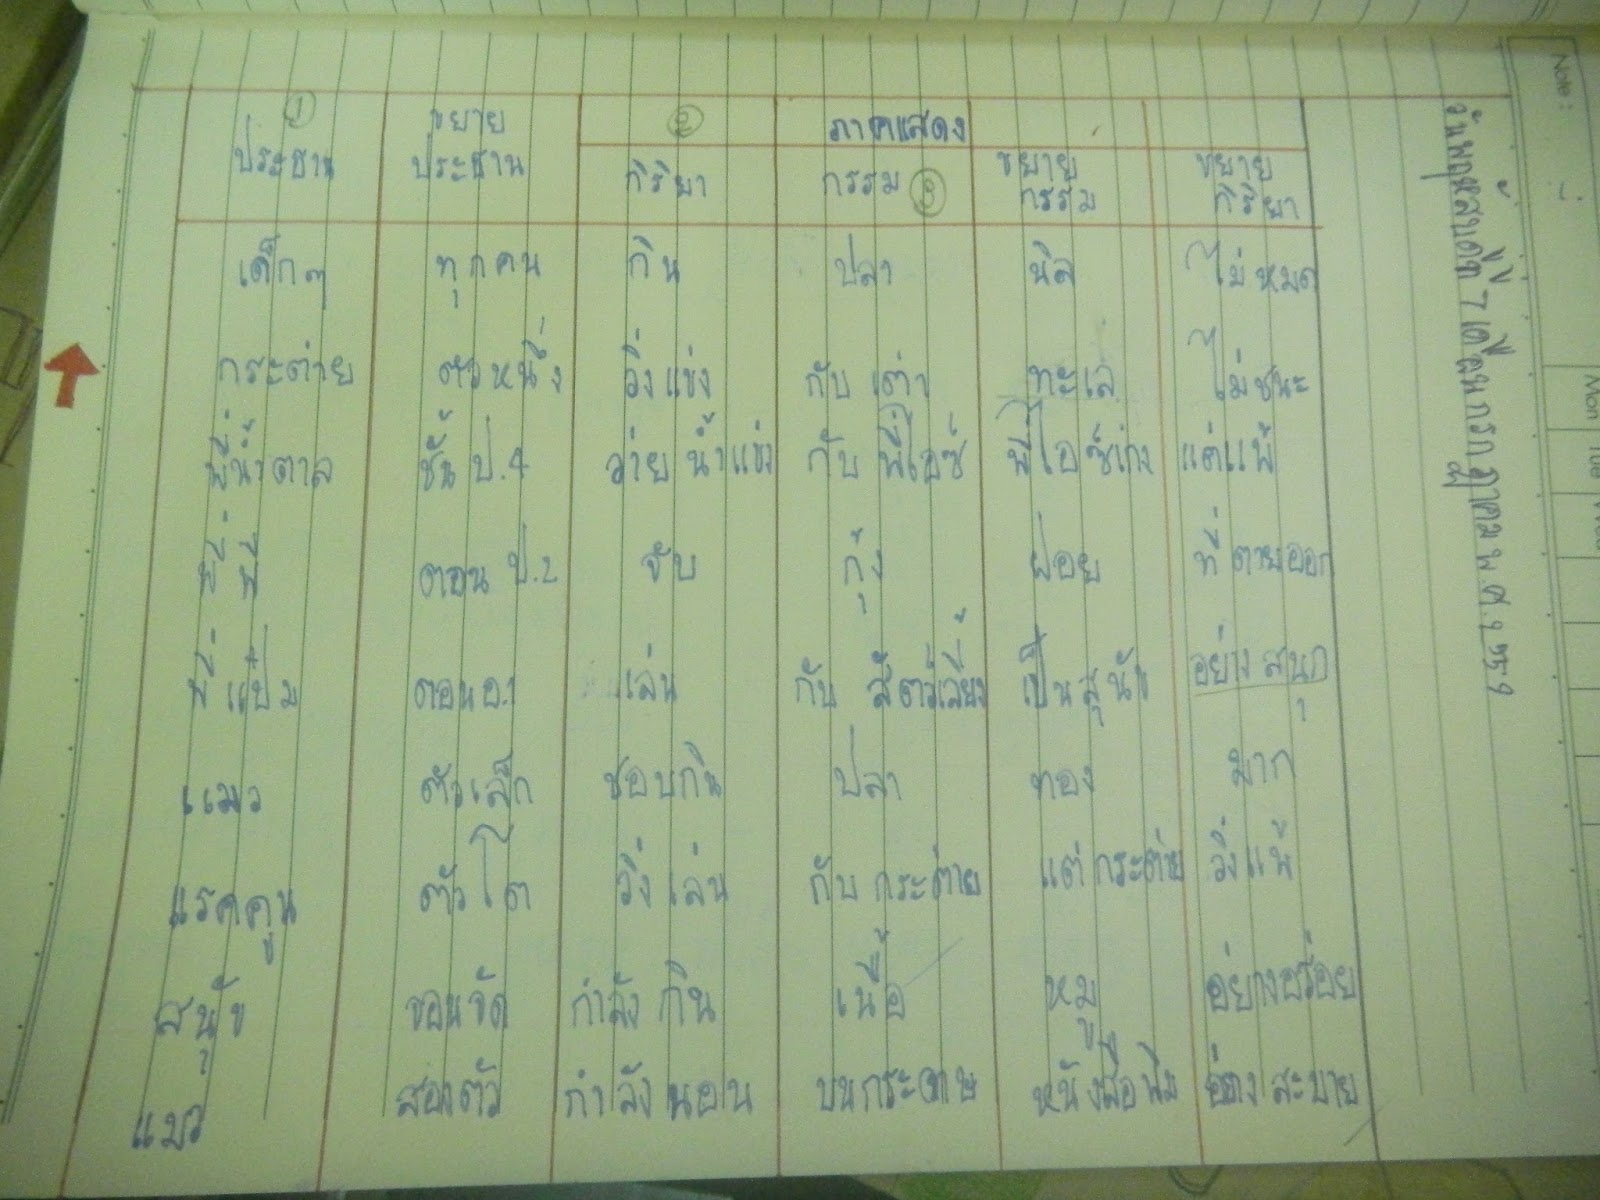 วันพฤหัสบดีที่ 7 เดือนกรกฎาคม พ.ศ.
Note :
Mon Tue Wed
① ขยาย ② ภาคแสดง
ประธาน ประธาน กิริยา กรรม ③ ขยายกรรม ขยายกิริยา
เด็กๆ ทุกคน กิน ปลา นิล ไม่หมด
กระต่าย ตัวหนึ่ง วิ่งแข่ง กับเต่า ทะเล ไม่ชนะ
พี่น้ำตาล ชั้น ป.4 ว่ายน้ำแข่ง กับพี่ไอซ์ พี่ไอซ์เก่ง แต่แพ้
พี่พี ตอน ป.2 จับ กุ้ง ฝอย ที่ตายออก
พี่แป้ม ตอนอ.1 เล่น กับ สัตว์เลี้ยง เป็นสุนัข อย่างสนุก
แมว ตัวเล็ก ชอบกิน ปลา ทอง มาก
แรคคูน ตัวโต วิ่งเล่น กับกระต่าย แต่กระต่าย วิ่งแพ้
สนุัข จอนจัด กำลังกิน เนื้อ หมู อย่างอร่อย
แมว สองตัว กำลังนอน บนกระดาษ หนังสือพิม อ่างสะบาย